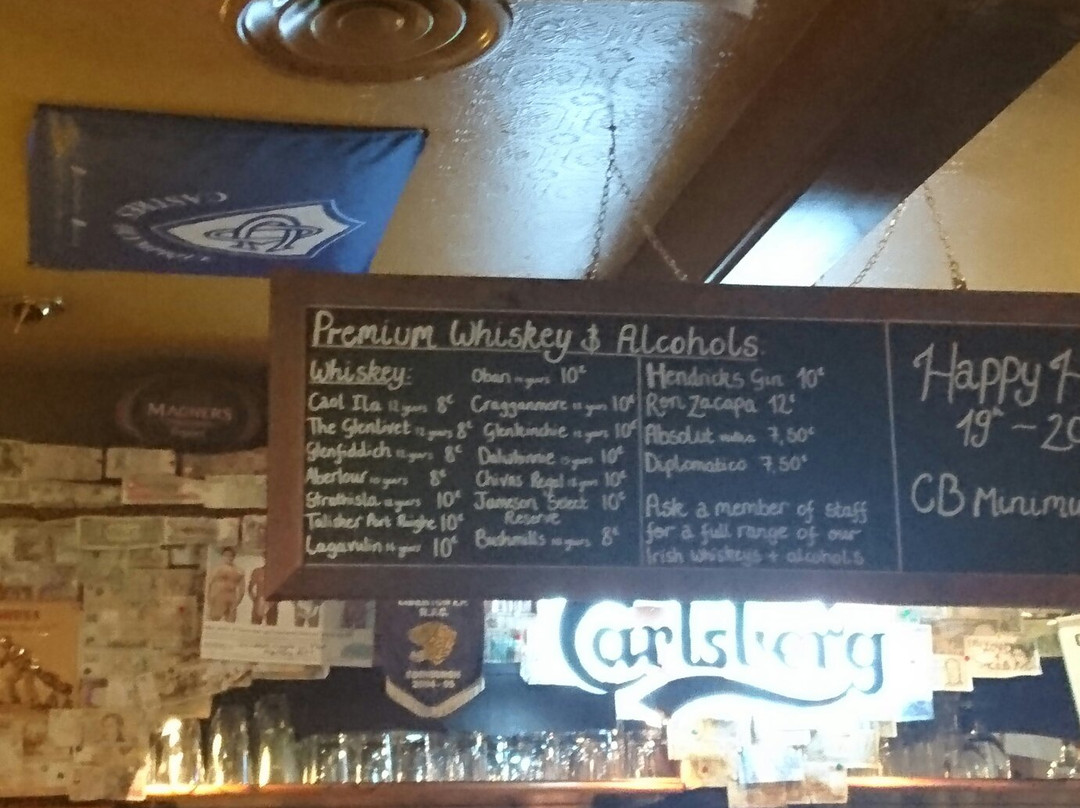 Premium Whiskey & Alcohols
Whiskey:
Caol Ila 12 years 8€
The Glenlivet 12 years 8€
Glenfiddich 8€
Aberlour 10 years 8€
Strathisla 10€
Talisker Port Ruighe 10€
Lagavulin 16 years 10€
Oban 10€
Cragganmore 10€
Glenkinchie 10€
Dalwhinnie 10€
Chivas Regal 10€
Jameson Select
Reserve 10€
Bushmills 10 years 8€
Hendricks Gin 10€
Ron Zacapa 12€
Absolut vodka 7,50€
Diplomatico 7,50€
Ask a member of staff
for a full range of our
Irish whiskeys + alcohols
Happy H
19h - 20
CB Minimu
CASTRES
MAGNERS
R.F.C.
Carlsberg